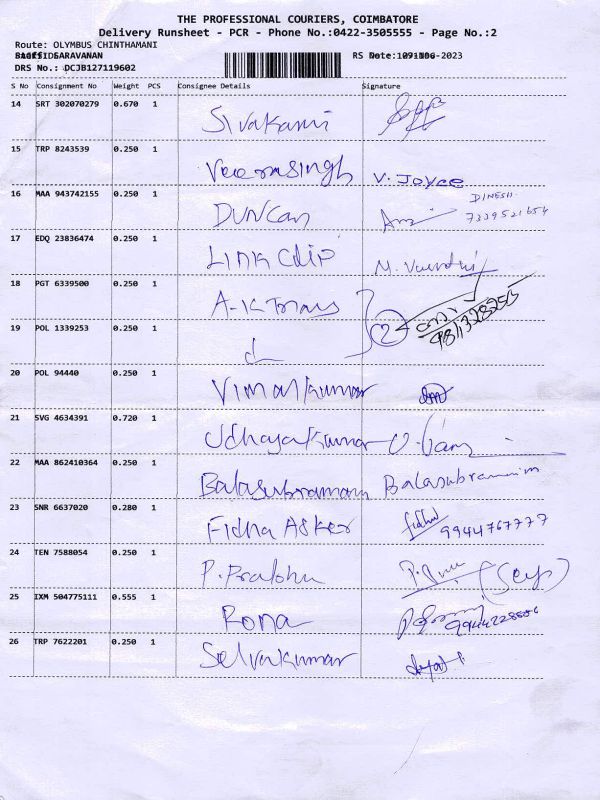 THE PROFESSIONAL COURIERS, COIMBATORE
Delivery Runsheet - PCR - Phone No.:0422-3505555 - Page No.:2
Route: OLYMBUS CHINTHAMANI
SARAVANAN RS Date: -2023
DRS No.: DCJB127119602
S No Consignment No Weight PCS Consignee Details Signature
14 SRT 302070279 0.670 1 Sivakami
15 TRP 8243539 0.250 1 Veerasingh V. Joyce
16 MAA 943742155 0.250 1 DUNCan DINESH.
7339521654
17 EDQ 23836474 0.250 1 Link Clip M.
18 PGT 6339500 0.250 1 A-K Trans
19 POL 1339253 0.250 1 2
20 POL 94440 0.250 1 Vimalkumar
21 SVG 4634391 0.720 1 Udhayakumar
22 MAA 862410364 0.250 1 Balasubramani Balasubramnim
23 SNR 6637020 0.280 1 Fidha Asker 9944767777
24 TEN 7588054 0.250 1 P. Prabhu
25 IXM 504775111 0.555 1 Rona
26 TRP 7622201 0.250 1 Selvakumar